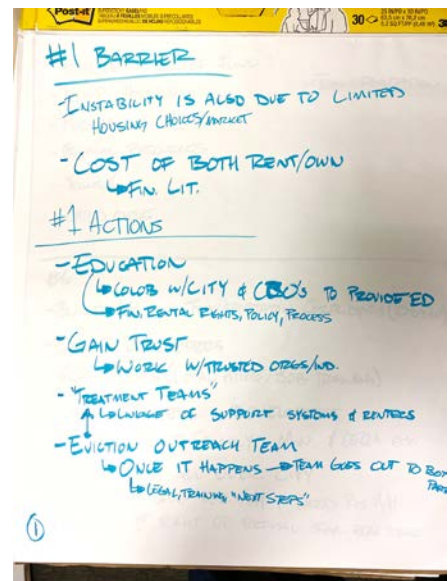 Post-it
30
#1 BARRIER
-INSTABILITY IS ALSO DUE TO LIMITED
HOUSING CHOICES/MARKET
-COST OF BOTH RENT/OWN
↳FIN. LIT.
#1 ACTIONS
-EDUCATION
↳COLOB W/CITY & CBO'S TO PROVIDE ED
↳FIN, RENTAL RIGHTS, POLICY, PROCESS
-GAIN TRUST
↳WORK W/TRUSTED ORGS/IND.
-"TREATMENT TEAMS"
↳LINKAGE OF SUPPORT SYSTEMS & RENTERS
-EVICTION OUTREACH TEAM
↳ONCE IT HAPPENS → TEAM GOES OUT TO BOTH
PART
↳LEGAL, TRAINING, "NEXT STEPS"
①